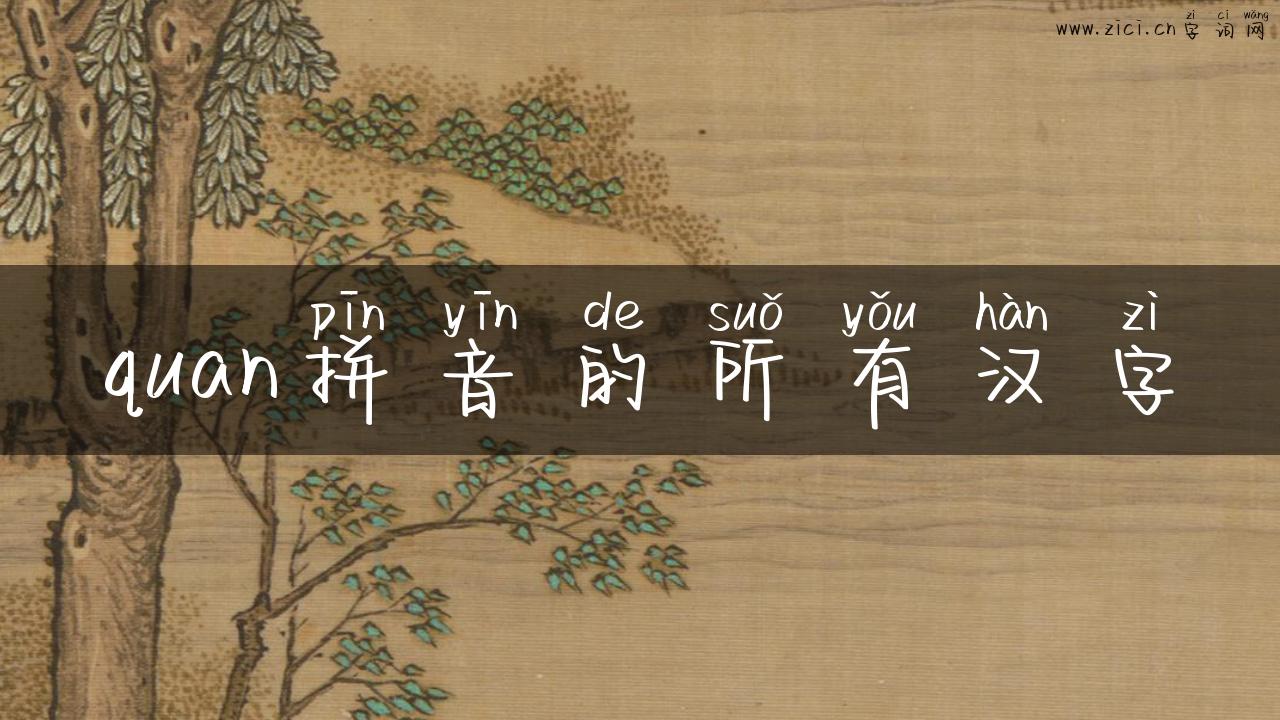 zì cí wǎng
www.zici.cn字词网
pīn yīn de suǒ yǒu hàn zì
quan拼音的所有汉字